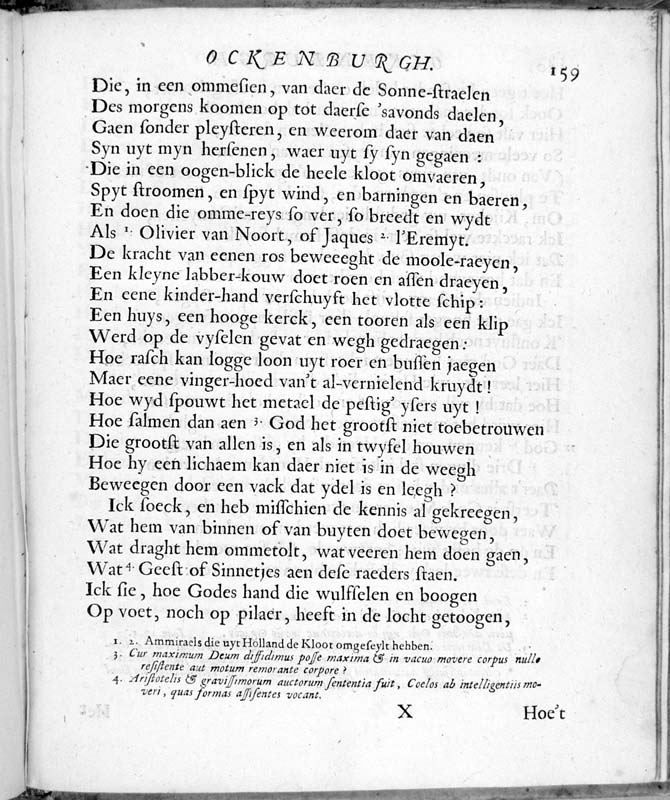 OCKENBURGH. 159
Die, in een ommeſien, van daer de Sonne-ſtraelen
Des morgens koomen op tot daerſe 'savonds daelen,
Gaen ſonder pleyſteren, en weerom daer van daen
Syn uyt myn herſenen, waer uyt ſy ſyn gegaen:
Die in een oogen-blick de heele kloot omvaeren,
Spyt ſtroomen, en ſpyt wind, en barningen en baeren,
En doen die omme-reys ſo ver, ſo breedt en wydt
Als 1. Olivier van Noort, of Jaques 2. l'Eremyt.
De kracht van eenen ros beweeeght de moole-raeyen,
Een kleyne labber-kouw doet roen en aſſen draeyen,
En eene kinder-hand verſchuyft het vlotte ſchip:
Een huys, een hooge kerck, een tooren als een klip
Werd op de vyſelen gevat en wegh gedraegen:
Hoe raſch kan logge loon uyt roer en buſſen jaegen
Maer eene vinger-hoed van't al-vernielend kruydt!
Hoe wyd ſpouwt het metael de peſtig' yſers uyt!
Hoe ſalmen dan aen 3. God het grootſt niet toebetrouwen
Die grootſt van allen is, en als in twyfel houwen
Hoe hy een lichaem kan daer niet is in de weegh
Beweegen door een vack dat ydel is en leegh?
Ick ſoeck, en heb miſſchien de kennis al gekreegen,
Wat hem van binnen of van buyten doet bewegen,
Wat draght hem ommetolt, wat veeren hem doen gaen,
Wat 4. Geeſt of Sinnetjes aen deſe raeders ſtaen.
Ick ſie, hoe Godes hand die wulfſelen en boogen
Op voet, noch op pilaer, heeft in de locht getoogen,
1. 2. Ammiraels die uyt Holland de Kloot omgeſeylt hebben.
3. Cur maximum Deum diffidimus poſſe maxima & in vacuo movere corpus nullo
reſiſtente aut motum remorante corpore?
4. Ariſtotelis & graviſſimorum auctorum ſententia fuit, Coelos ab intelligentiis mo-
veri, quas formas aſſiſentes vocant.
X Hoe't